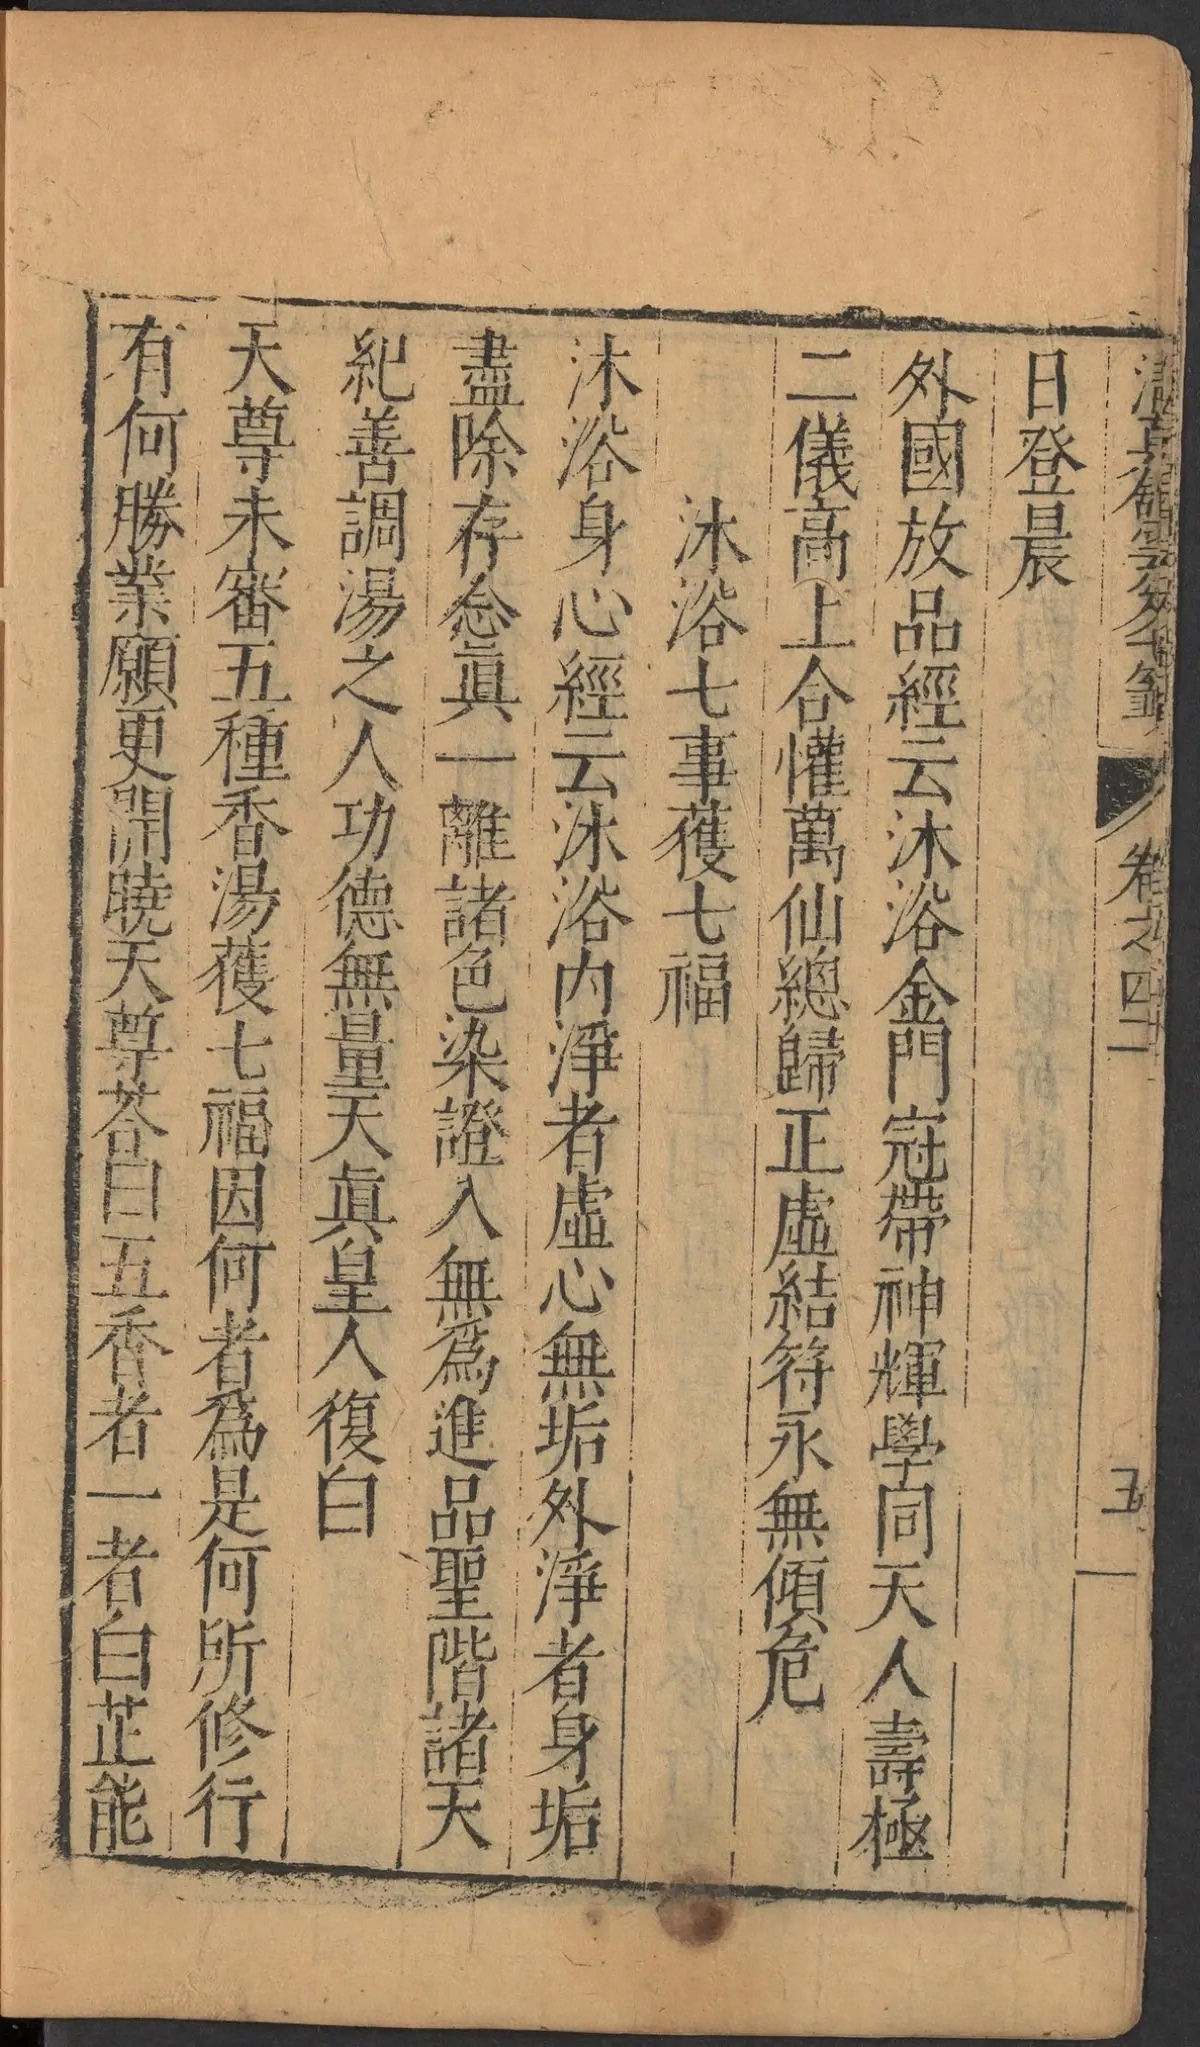 清真館雲笈七籤 卷之四十一 五
日登晨
外國放品經云沐浴金門冠帶神輝學同天人壽極
二儀高上合懽萬仙總歸正虛結符永無傾危
沐浴七事獲七福
沐浴身心經云沐浴内淨者虛心無垢外淨者身垢
盡除存念眞一離諸色染證入無爲進品聖階諸天
紀善調湯之人功德無量天眞皇人復白
天尊未審五種香湯獲七福因何者爲是何所修行
有何勝業願更開曉天尊荅曰五香者一者白芷能